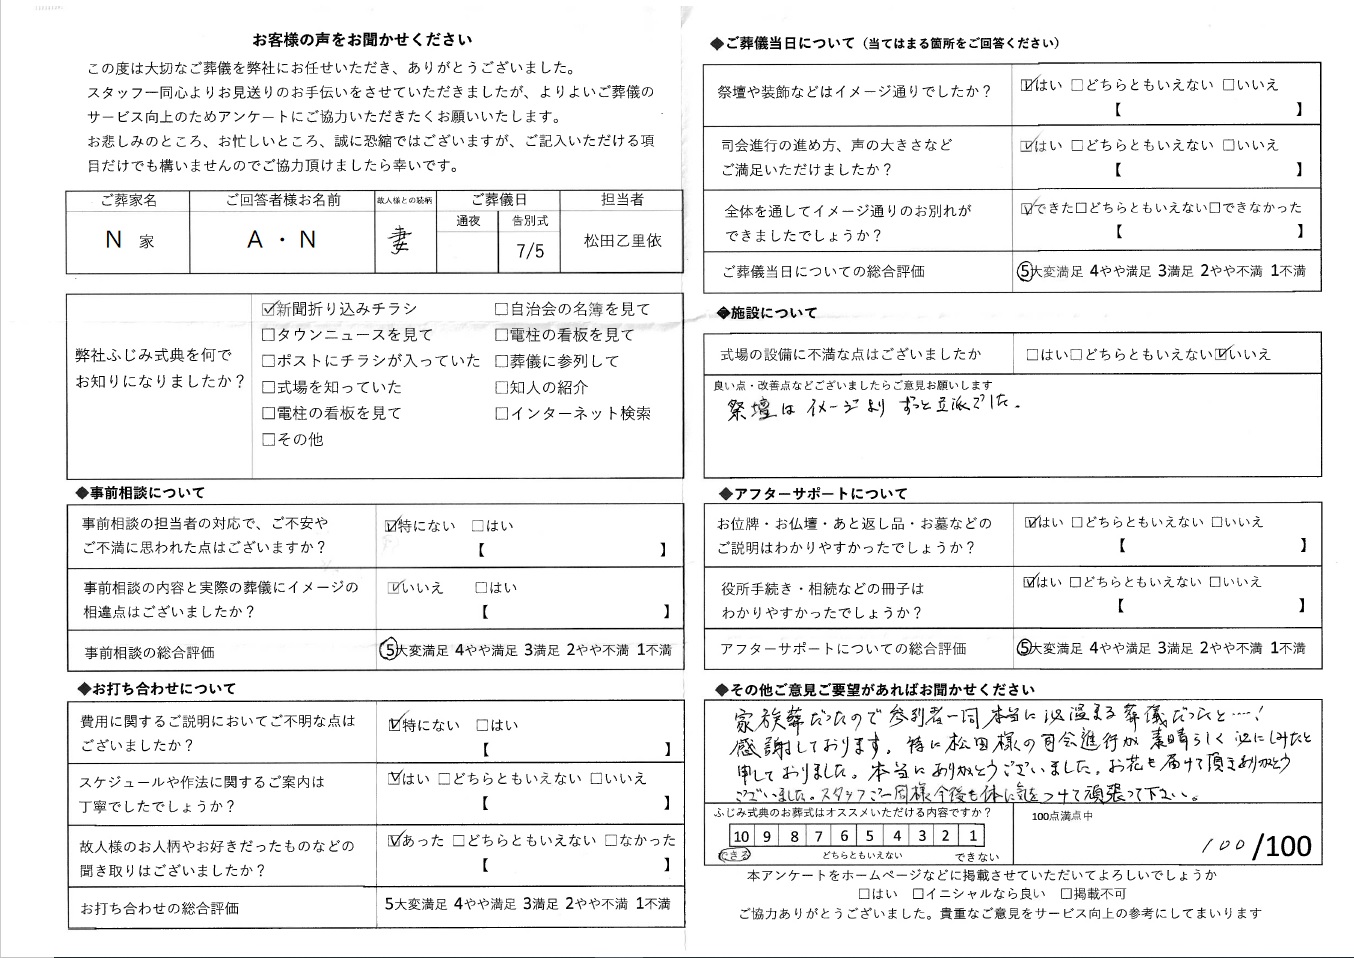 お客様の声をお聞かせください
この度は大切なご葬儀を弊社にお任せいただき、ありがとうございました。
スタッフ一同心よりお見送りのお手伝いをさせていただきましたが、よりよいご葬儀の
サービス向上のためアンケートにご協力いただきたくお願いいたします。
お悲しみのところ、お忙しいところ、誠に恐縮ではございますが、ご記入いただける項
目だけでも構いませんのでご協力頂けましたら幸いです。
ご葬家名 ご回答者様お名前 故人様との続柄 ご葬儀日 担当者
通夜 告別式
N 家 A・N 妻 7/5 松田乙里依
弊社ふじみ式典を何で
お知りになりましたか？
☑新聞折り込みチラシ □自治会の名簿を見て
□タウンニュースを見て □電柱の看板を見て
□ポストにチラシが入っていた □葬儀に参列して
□式場を知っていた □知人の紹介
□電柱の看板を見て □インターネット検索
□その他
◆事前相談について
事前相談の担当者の対応で、ご不安や
ご不満に思われた点はございますか？
☑特にない □はい
【 】
事前相談の内容と実際の葬儀にイメージの
相違点はございましたか？
☑いいえ □はい
【 】
事前相談の総合評価 ⑤大変満足 4やや満足 3満足 2やや不満 1不満
◆お打ち合わせについて
費用に関するご説明においてご不明な点は
ございましたか？
☑特にない □はい
【 】
スケジュールや作法に関するご案内は
丁寧でしたでしょうか？
☑はい □どちらともいえない □いいえ
【 】
故人様のお人柄やお好きだったものなどの
聞き取りはございましたか？
☑あった □どちらともいえない □なかった
【 】
お打ち合わせの総合評価 5大変満足 4やや満足 3満足 2やや不満 1不満
◆ご葬儀当日について（当てはまる箇所をご回答ください）
祭壇や装飾などはイメージ通りでしたか？ ☑はい □どちらともいえない □いいえ
【 】
司会進行の進め方、声の大きさなど
ご満足いただけましたか？
☑はい □どちらともいえない □いいえ
【 】
全体を通してイメージ通りのお別れが
できましたでしょうか？
☑できた□どちらともいえない□できなかった
【 】
ご葬儀当日についての総合評価 ⑤大変満足 4やや満足 3満足 2やや不満 1不満
◆施設について
式場の設備に不満な点はございましたか □はい□どちらともいえない☑いいえ
良い点・改善点などございましたらご意見お願いします
祭壇は イメージより ずっと立派でした。
◆アフターサポートについて
お位牌・お仏壇・あと返し品・お墓などの
ご説明はわかりやすかったでしょうか？
☑はい □どちらともいえない □いいえ
【 】
役所手続き・相続などの冊子は
わかりやすかったでしょうか？
☑はい □どちらともいえない □いいえ
【 】
アフターサポートについての総合評価 ⑤大変満足 4やや満足 3満足 2やや不満 1不満
◆その他ご意見ご要望があればお聞かせください
家族葬だったので 参列者一同 本当に心温まる葬儀だったと…!
感謝しております。特に松田様の司会進行が 素晴らしく 心にしみたと
申しておりました。本当にありがとうございました。お花も届けて頂きありがとう
ございました。スタッフご一同様 今後も体に気をつけて頑張って下さい。
ふじみ式典のお葬式はオススメいただける内容ですか？
10 9 8 7 6 5 4 3 2 1
できる どちらともいえない できない
100点満点中
100/100
本アンケートをホームページなどに掲載させていただいてよろしいでしょうか
□はい □イニシャルなら良い □掲載不可
ご協力ありがとうございました。貴重なご意見をサービス向上の参考にしてまいります